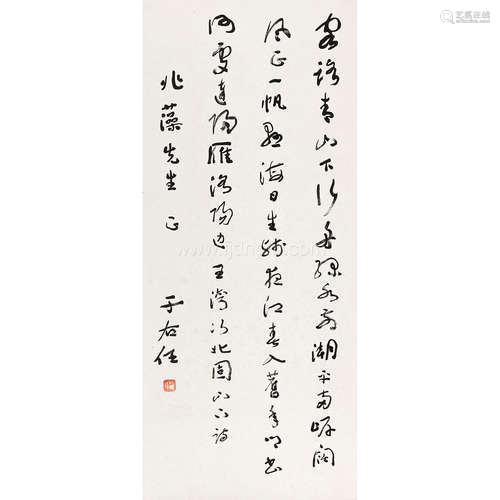 客路青山下行舟綠水前潮平兩岸闊
風正一帆懸海日生殘夜江春入舊年鄉書
何處達歸雁洛陽邊王灣次北固山下詩
兆藻先生 正
于右任
艺狐在线